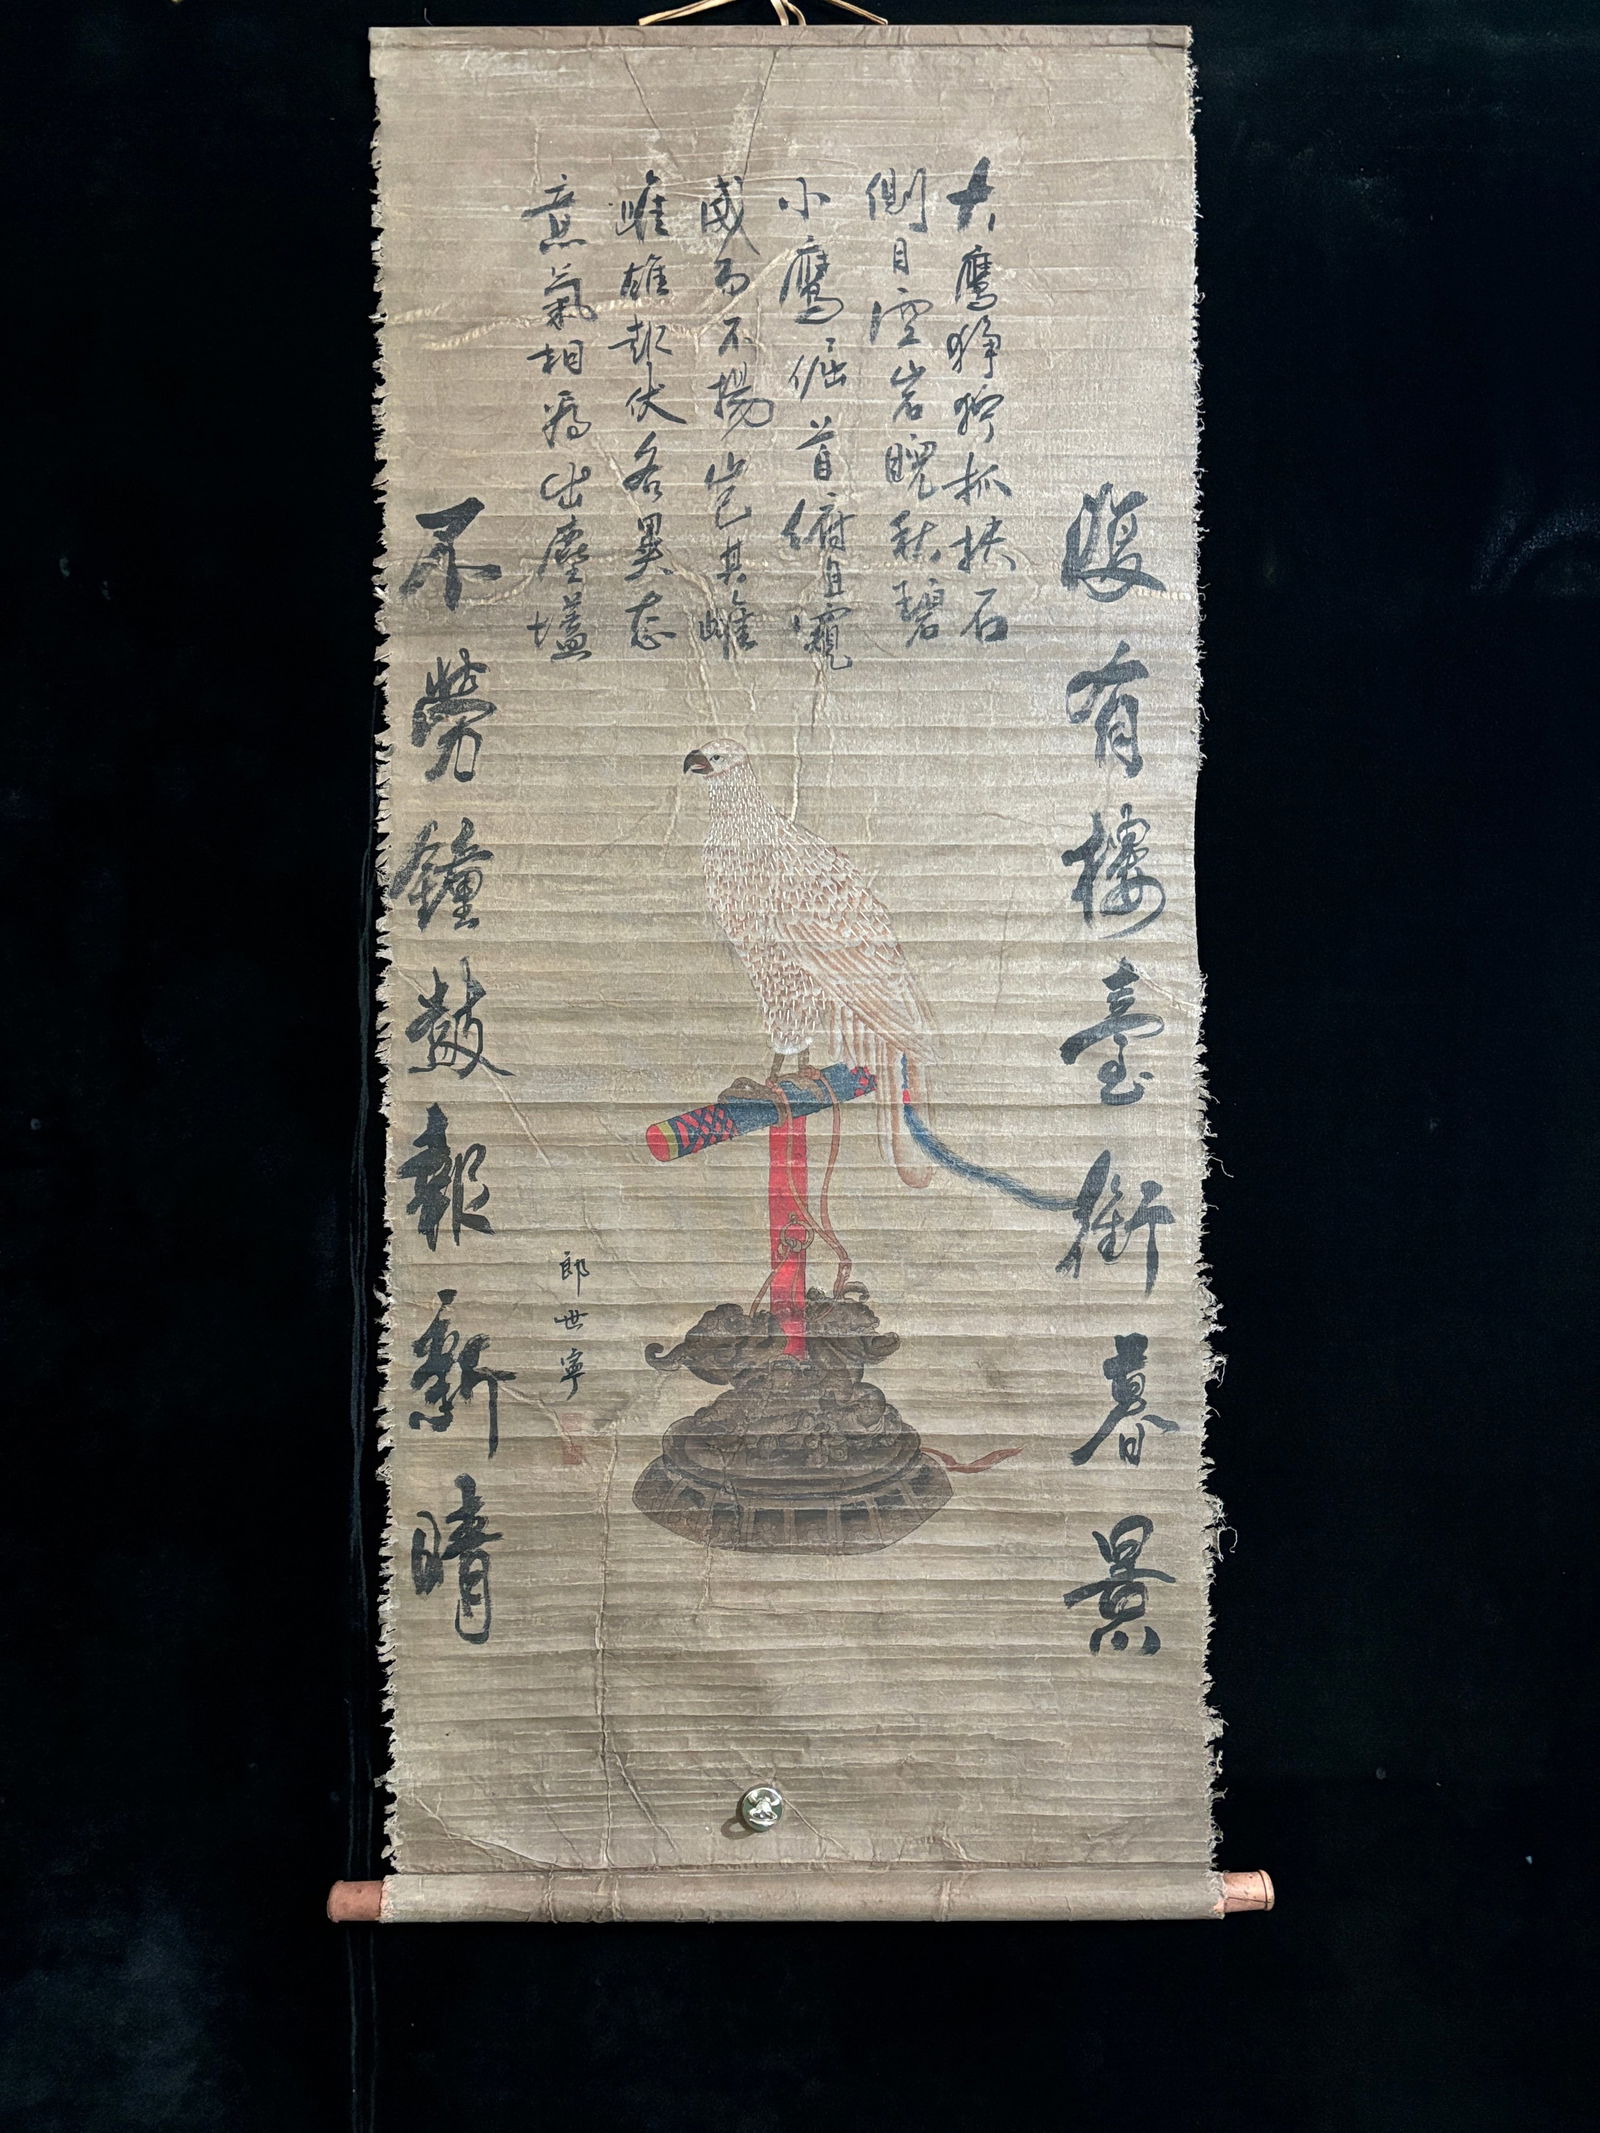 復有樓臺銜暮景
大鷹猙獰抓抉石
側目岩睨秋碧
小鷹倔首俯且窺
威而不揚豈其雌
雌雄起伏各異
意氣相為出塵壒
郎世寧
不勞鐘鼓報新晴